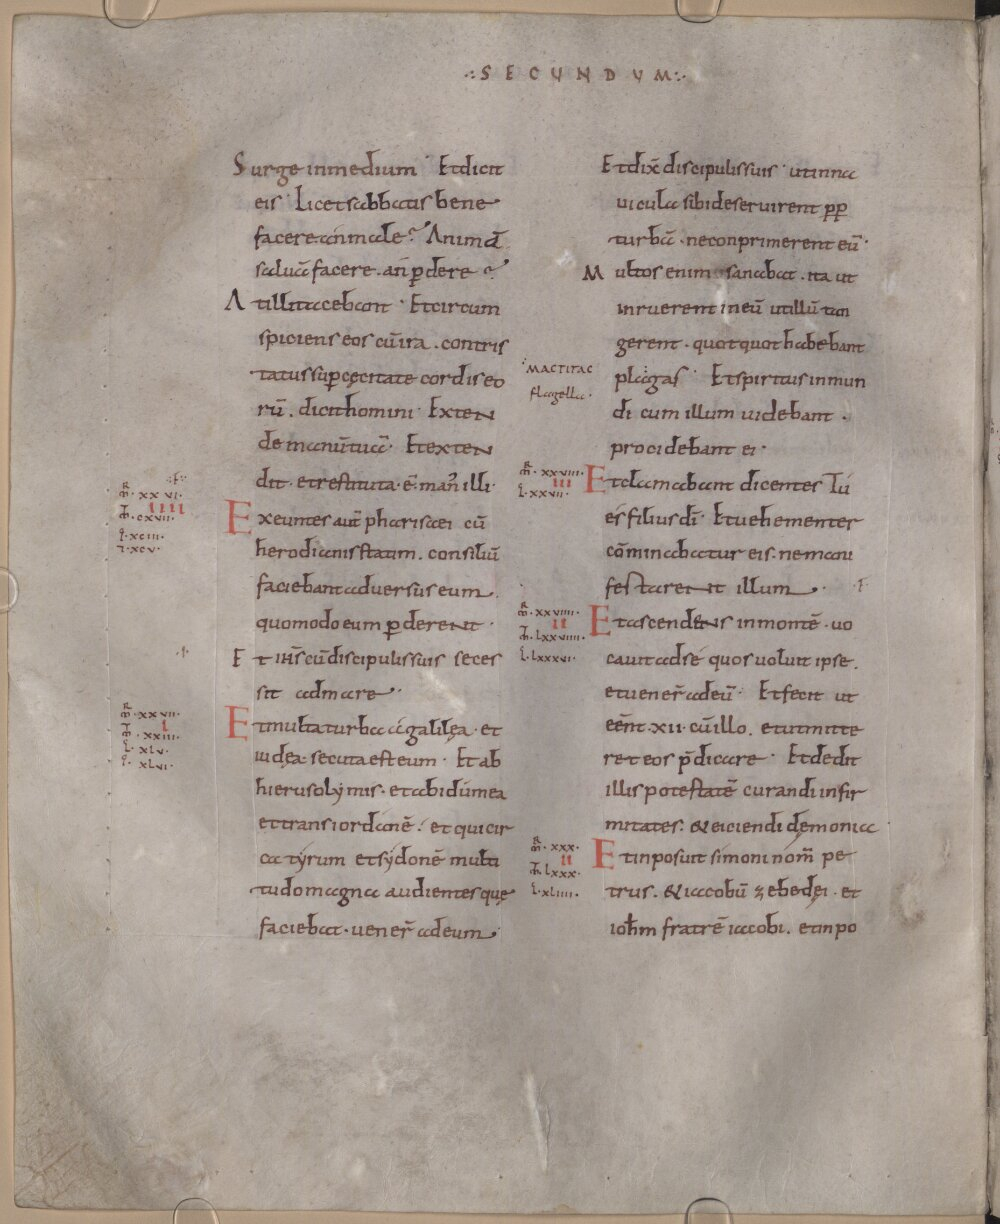 .:SECUNDVM:.
Surge inmedium· Et dicit
eis· Licet sabbatis bene
facere an male? Animā
saluā facere· an ꝑdere?
At illi tacebant· Et circum
spiciens eos cū ira· contris
tatus suꝑ cęcitate cordis eo
rū· dicit homini· Exten
de manū tuā· Et exten
dit· et restituta· ē man' illi·
R̄ M̄·XXVI·
IIII
M̄T·CXVII·
L·XCIII·
I·XCV·
Exeuntes aut̄ pharisaei cū
herodianis statim· consiliū
faciebant aduersus eum·
quomodo eum ꝑderent·
Et ih̄s cū discipulis suis seces
sit ad mare·
M̄R·XXVII·
I
M̄T·XXIII·
L·XLV·
I·XLVI·
Et multa turba a galilęa· et
iudęa· secuta est eum· Et ab
hierusolýmis· et ab idumea
et trans iordanē· et qui cir
ca týrum et sýdonē multi
tudo magna audientes quę
faciebat· uener̄ ad eum·
Et dix̄ discipulis suis· ut in na
uicula sibi deseruirent ꝓp
turbā· ne conprimerent eū·
Multos enim sanabat· ita ut
inruerent in eū ut illū tan
gerent· quotquot habebant
MACTITAC
flagella·
plagas· Et spiritus inmun
di cum illum uidebant·
procidebant ei·
M̄R·XXVIII·
III
L·XXVII·
Et clamabant dicentes Tu
es filius dī· Et uehementer
cōminabatur eis· ne mani
festarent illum·
M̄R·XXVIIII·
II
M̄T·LXXVIIII·
L·LXXXVI·
Et ascendens in montē· uo
cauit ad sé quos uoluit ipse·
et uener̄ ad eū· Et fecit ut
eēnt·XII·cū illo· et ut mitte
ret eos p̄dicare· Et dedit
illis potestatē curandi infir
mitates· & eiciendi dęmonia
M̄R·XXX·
II
M̄T·LXXX·
L·XLIIII·
Et inposuit simoni nom̄ pe
trus· & iacobū zebedęi· et
ioh̄m fratrē iacobi· et inpo